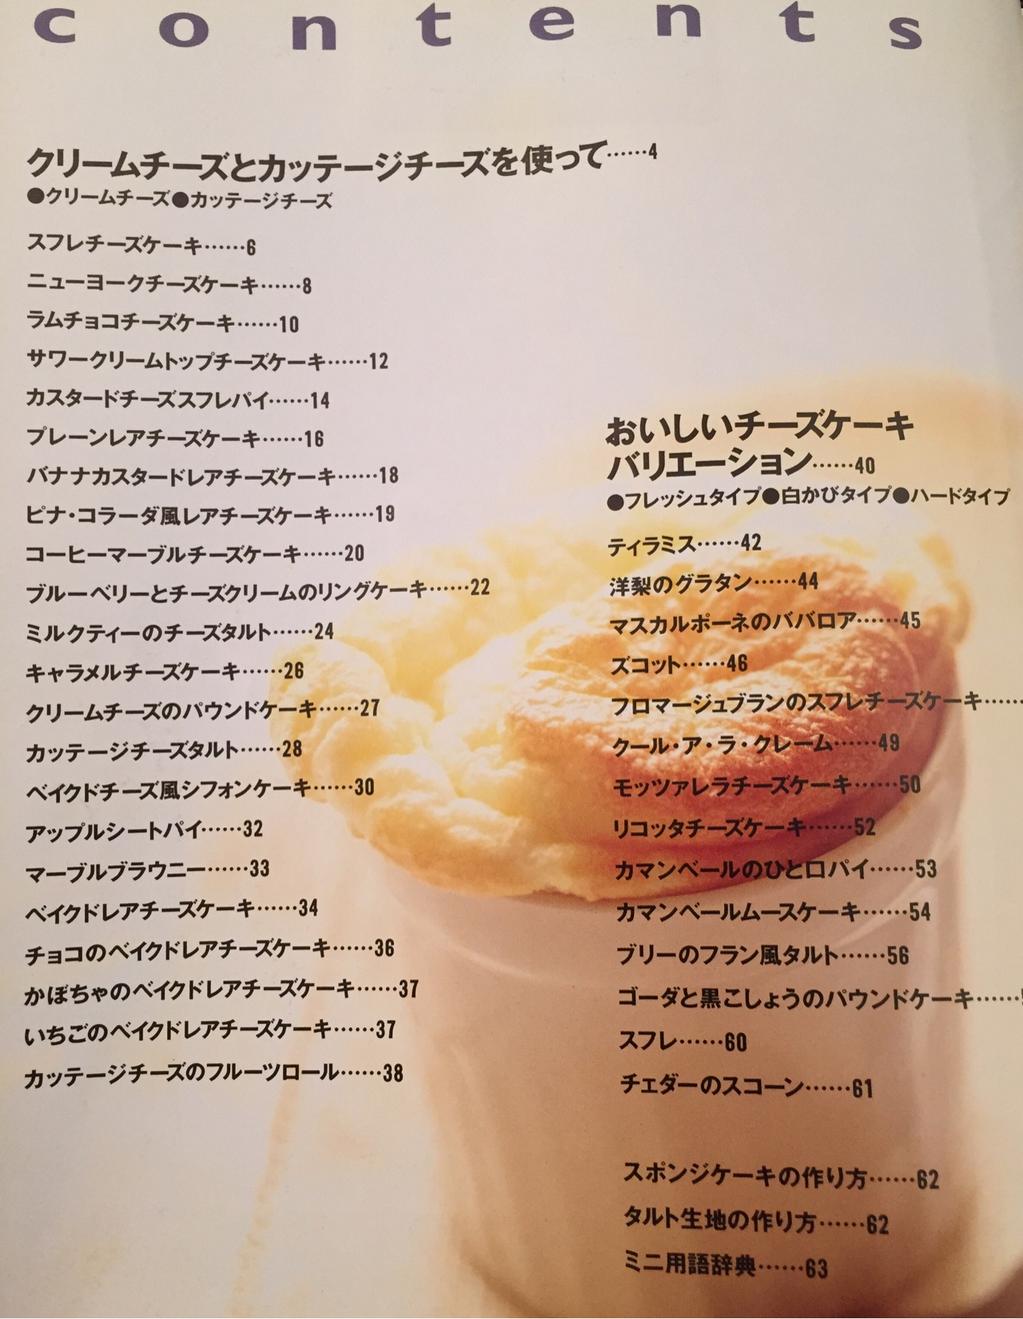 contents
クリームチーズとカッテージチーズを使って……4
●クリームチーズ●カッテージチーズ
スフレチーズケーキ……6
ニューヨークチーズケーキ……8
ラムチョコチーズケーキ……10
サワークリームトップチーズケーキ……12
カスタードチーズスフレパイ……14
プレーンレアチーズケーキ……16
バナナカスタードレアチーズケーキ……18
ピナ・コラーダ風レアチーズケーキ……19
コーヒーマーブルチーズケーキ……20
ブルーベリーとチーズクリームのリングケーキ……22
ミルクティーのチーズタルト……24
キャラメルチーズケーキ……26
クリームチーズのパウンドケーキ……27
カッテージチーズタルト……28
ベイクドチーズ風シフォンケーキ……30
アップルシートパイ……32
マーブルブラウニー……33
ベイクドレアチーズケーキ……34
チョコのベイクドレアチーズケーキ……36
かぼちゃのベイクドレアチーズケーキ……37
いちごのベイクドレアチーズケーキ……37
カッテージチーズのフルーツロール……38
おいしいチーズケーキ
バリエーション……40
●フレッシュタイプ●白かびタイプ●ハードタイプ
ティラミス……42
洋梨のグラタン……44
マスカルポーネのババロア……45
ズコット……46
フロマージュブランのスフレチーズケーキ……
クール・ア・ラ・クレーム……49
モッツァレラチーズケーキ……50
リコッタチーズケーキ……52
カマンベールのひと口パイ……53
カマンベールムースケーキ……54
ブリーのフラン風タルト……56
ゴーダと黒こしょうのパウンドケーキ……
スフレ……60
チェダーのスコーン……61
スポンジケーキの作り方……62
タルト生地の作り方……62
ミニ用語辞典……63